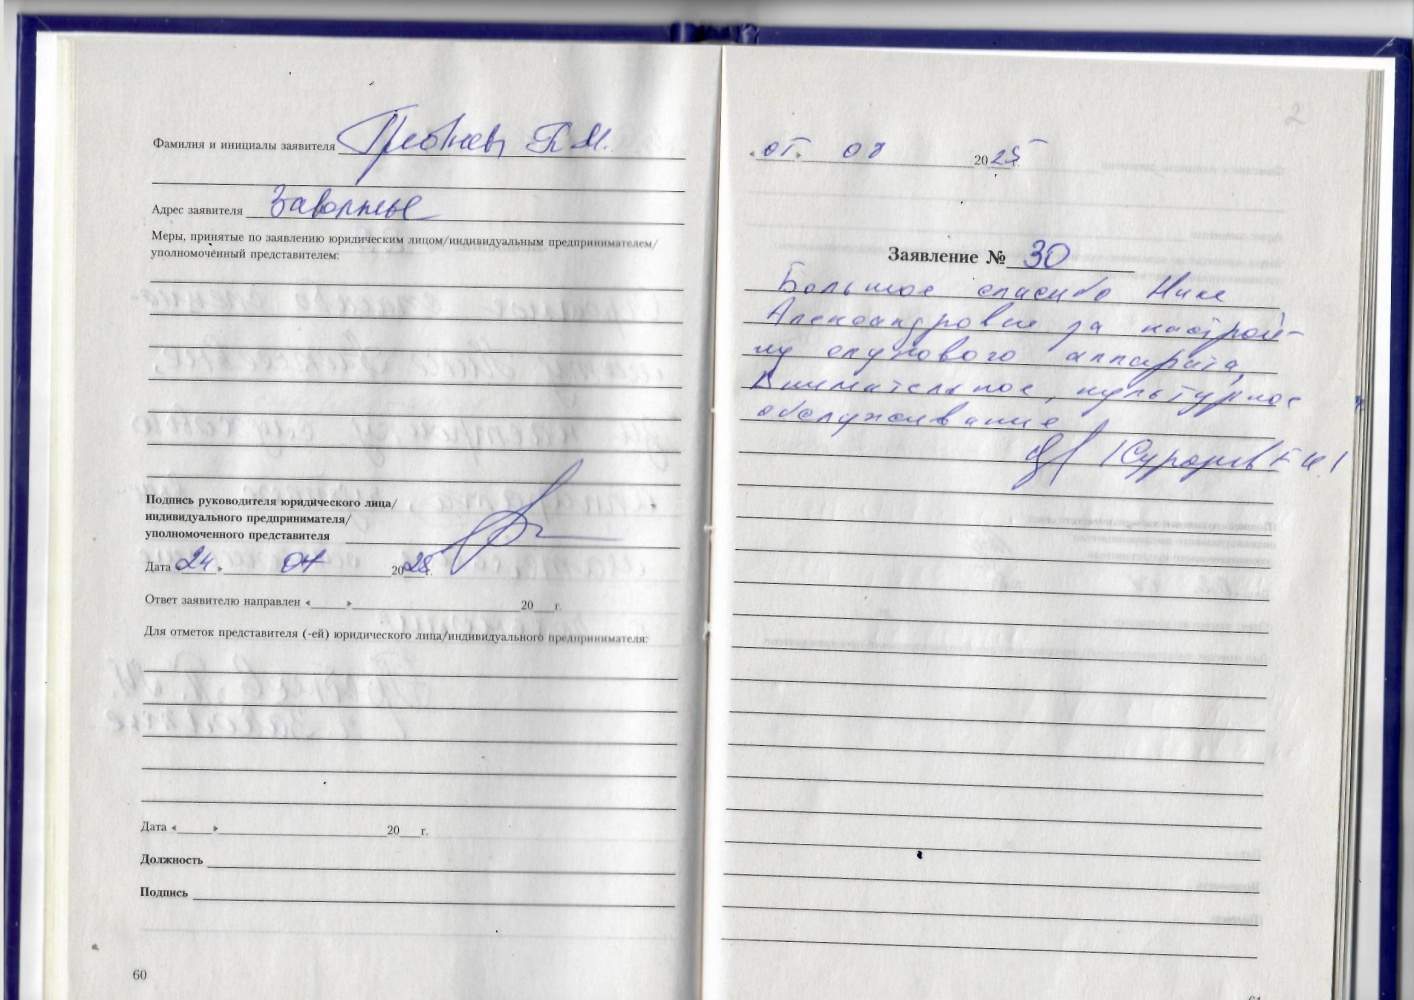 Фамилия и инициалы заявителя
Адрес заявителя Заволжье
Меры, принятые по заявлению юридическим лицом/индивидуальным предпринимателем/
уполномоченный представителем:
Подпись руководителя юридического лица/
индивидуального предпринимателя/
уполномоченного представителя
Дата 24 » 04 2025 г.
Ответ заявителю направлен «     »     20     г.
Для отметок представителя (-ей) юридического лица/индивидуального предпринимателя:
Дата «     »     20     г.
Должность
Подпись
60
« 07 » 08 2025 г.
Заявление № 30
Большое спасибо Нине
Александровне за настрой-
ку слухового аппарата,
Внимательное, культурное
обслуживание